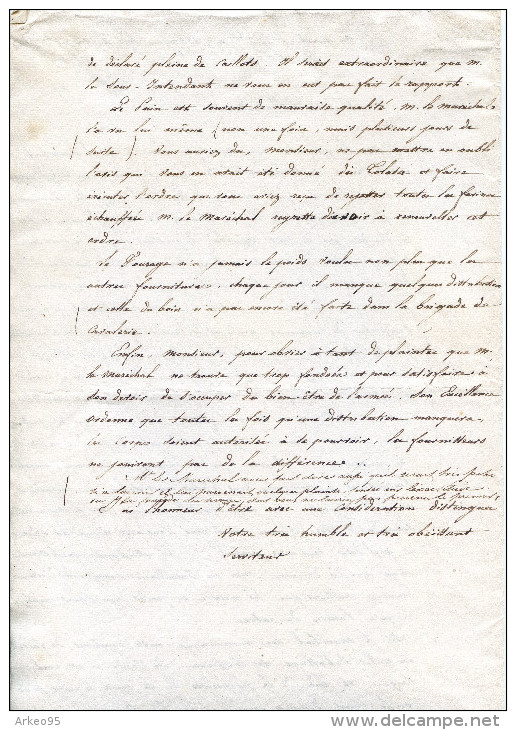 de déclaré pleine de callots. Il serait extraordinaire que m.
le Sous-Intendant ne vous en eut pas fait le rapport.
Le Pain est souvent de mauvaise qualité, m. le maréchal
l'a vu lui même (non une fois, mais plusieurs jours de
suite). Vous auriez du, monsieur, ne pas mettre en oubli
l'avis que vous en avait été donné de Tolosa et faire
exécuter l'ordre que vous aviez reçu de rejetter toutes les farines
échauffées M. le Maréchal regrette d'avoir à renouveller cet
ordre.
Le Fourage n'a jamais le poids voulu non plus que les
autres fournitures, chaque jour il manque quelques distributions
et celle du bois n'a pas encore été faite dans la brigade de
Cavalerie.
Enfin, monsieur, pour obvier à tant de plaintes que M.
le maréchal ne trouve que trop fondées et pour satisfaire à
son devoir de s'occuper du bien-être de l'armée, Son Excellence
ordonne que toutes les fois qu'une distribution manquera,
les corps soient autorisés à le pourvoir, les fournisseurs
ne jouiront pas de la différence.
M. le Maréchal
quelques plaintes
ai l'honneur d'être avec une Considération distinguée
Votre très humble et très obéissant
Serviteur
Arkeo95
delcampe.net